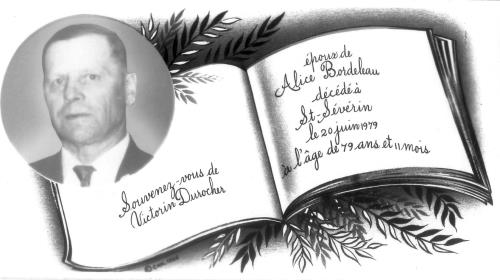 Souvenez-vous de
Victorin Durocher
époux de
Alice Bordeleau
décédé à
St-Séverin
le 20 juin 1979
à l'âge de 79 ans et 11 mois